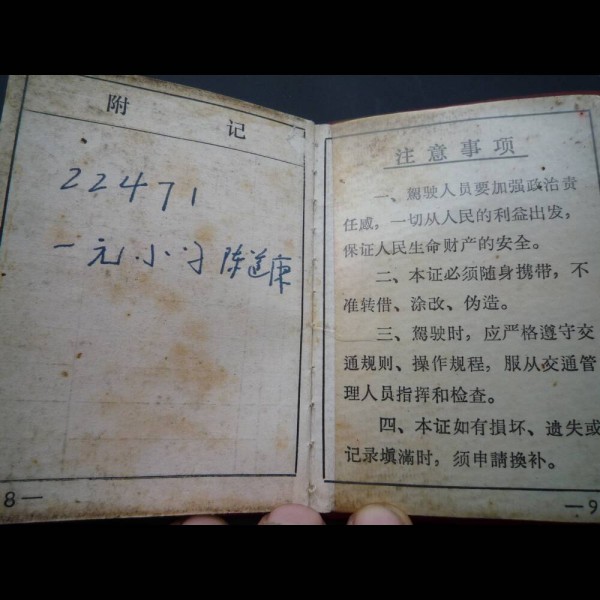 附记
22471
一元小
陈
8—
注意事项
一、駕駛人员要加强政治责
任感，一切从人民的利益出发，
保证人民生命财产的安全。
二、本证必须随身携带，不
准转借、涂改、伪造。
三、駕駛时，应严格遵守交
通规则、操作规程，服从交通管
理人员指挥和检查。
四、本证如有损坏、遗失或
记录填滿时，须申請换补。
—9